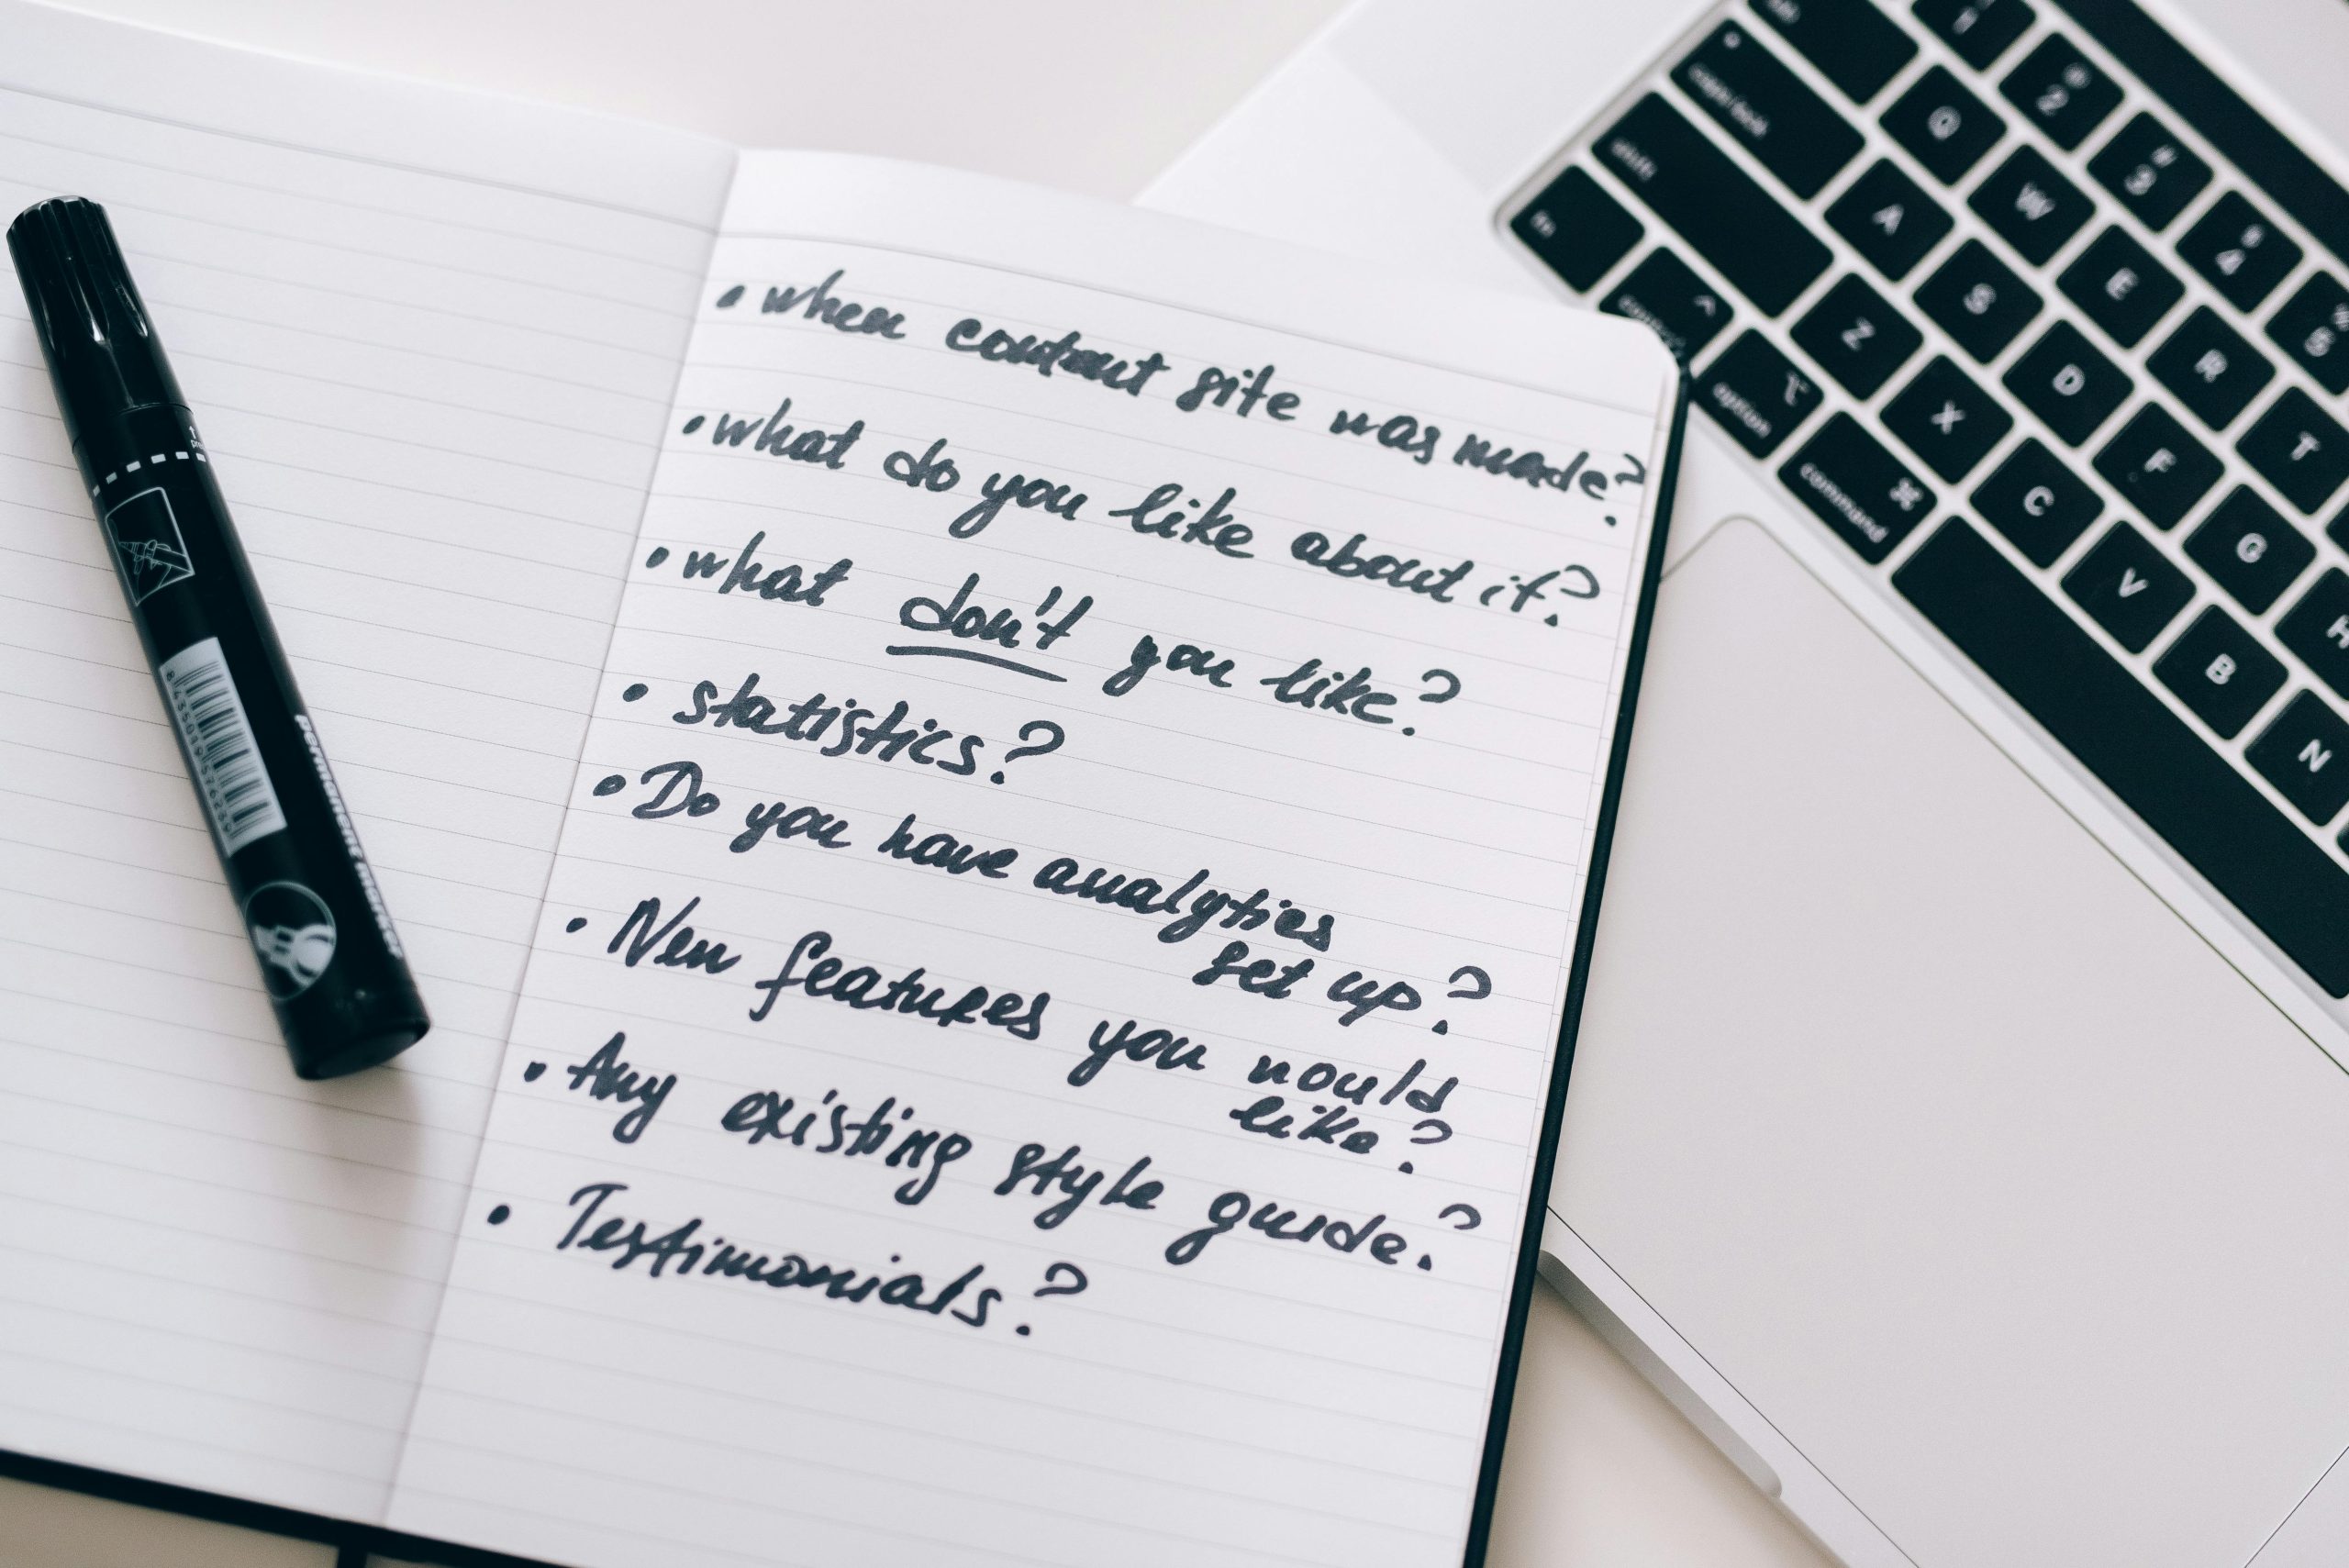 • when content site was made?
• what do you like about it?
• what don't you like?
• statistics?
• Do you have analytics
set up?
• New features you would
like?
• Any existing style guide?
• Testimonials?
permanent marker
fn
shift
caps lock
control
option
command
1
@ 2
# 3
$ 4
% 5
Q W E R T
A S D F G H
Z X C V B N